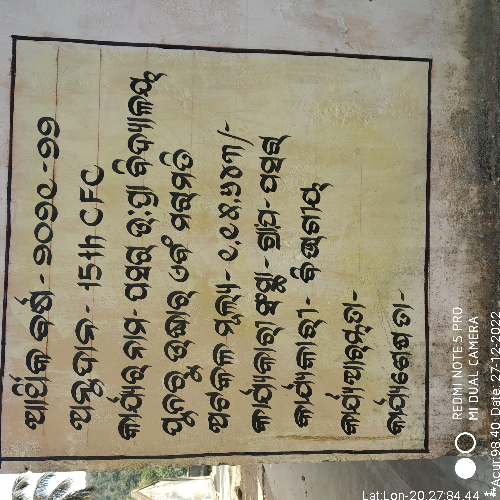 ଆର୍ଥିକ ବର୍ଷ - ୨୦୨୧-୨୨
ଅନୁଦାନ - 15th CFC
କାର୍ଯ୍ୟର ନାମ- ପମ୍ପର ଉ:ପ୍ରା ବିଦ୍ୟାଳୟ
ପୁନରୁଦ୍ଧାର ଏବଂ ମରାମତି
ଅଟକଳ ମୂଲ୍ୟ-
କାର୍ଯ୍ୟକାରୀ ସଂସ୍ଥା - ଗ୍ରାମ-
କାର୍ଯ୍ୟକାରୀ - ବିଭାଗୀୟ
କାର୍ଯ୍ୟ ଆରମ୍ଭ ତା-
କାର୍ଯ୍ୟ ଶେଷ ତା-
REDMI NOTE 5 PRO
MI DUAL CAMERA
Lat:Lon- 20.27:84.44
Acur 98.40 - Date : 27-12-2022